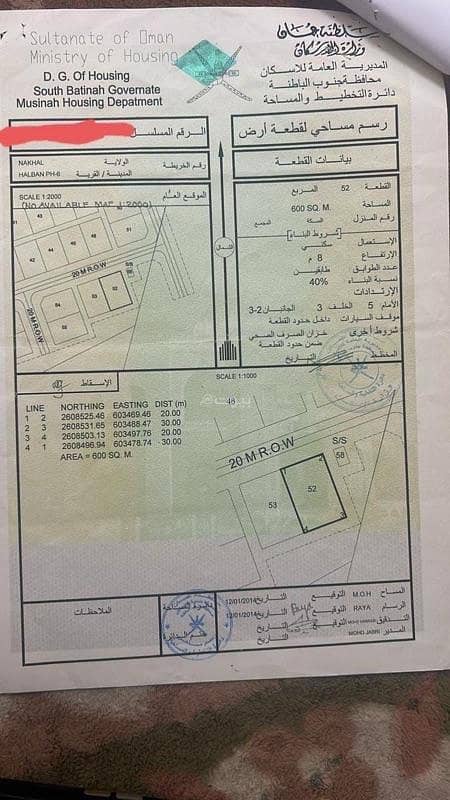 Sultanate of Oman
Ministry of Housing
D. G. Of Housing
South Batinah Governate
Musinah Housing Depatment
سلطنة عمان
وزارة الإسكان
المديرية العامة للاسكان
محافظة جنوب الباطنة
دائرة التخطيط والمساحة
الرقم المسلسل
رسم مساحي لقطعة أرض
NAKHAL
الولاية
HALBAN PH-6
المدينة / القرية
رقم الخريطة
بيانات القطعة
SCALE 1:2000
الموقع العام
(No AVAILABLE MAP 1:2000)
20 M R.O.W
S/S
58
52
53
54
الشمال
القطعة 52 المربع
المساحة 600 SQ. M.
رقم المنزل السكة المجمع
شروط البناء
الإستعمال سكني
الارتفاع 8 م
عدد الطوابق طابقين
نسبة البناء 40%
الإرتدادات
الأمام 5 الخلف 3 الجانبان 2-3
موقف السيارات داخل حدود القطعة
شروط أخرى خزان الصرف الصحي
ضمن حدود القطعة
المخطط التاريخ
الإسقاط
SCALE 1:1000
LINE NORTHING EASTING DIST (m)
1 2 2608525.46 603469.46 20.00
2 3 2608531.65 603488.47 30.00
3 4 2608503.13 603497.76 20.00
4 1 2608496.94 603478.74 30.00
AREA = 600 SQ. M.
46
20 M R.O.W
S/S
58
52
53
الملاحظات
المساح M.O.H التوقيع التاريخ 12/01/2014
الرسام RAYA التوقيع التاريخ 12/01/2014
التدقيق التوقيع التاريخ
المدير MOHD JABRI التوقيع التاريخ